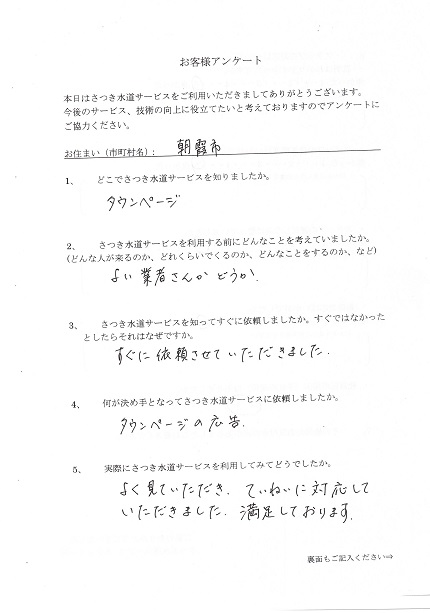 お客様アンケート
本日はさつき水道サービスをご利用いただきましてありがとうございます。
今後のサービス、技術の向上に役立てたいと考えておりますのでアンケートに
ご協力ください。
お住まい（市町村名）: 朝霞市
1、 どこでさつき水道サービスを知りましたか。
タウンページ
2、 さつき水道サービスを利用する前にどんなことを考えていましたか。
(どんな人が来るのか、どれくらいでくるのか、どんなことをするのか、など)
よい業者さんかどうか.
3、 さつき水道サービスを知ってすぐに依頼しましたか。すぐではなかった
としたらそれはなぜですか。
すぐに依頼させていただきました.
4、 何が決め手となってさつき水道サービスに依頼しましたか。
タウンページの広告.
5、 実際にさつき水道サービスを利用してみてどうでしたか。
よく見ていただき、ていねいに対応して
いただきました. 満足しております.
裏面もご記入ください⇒